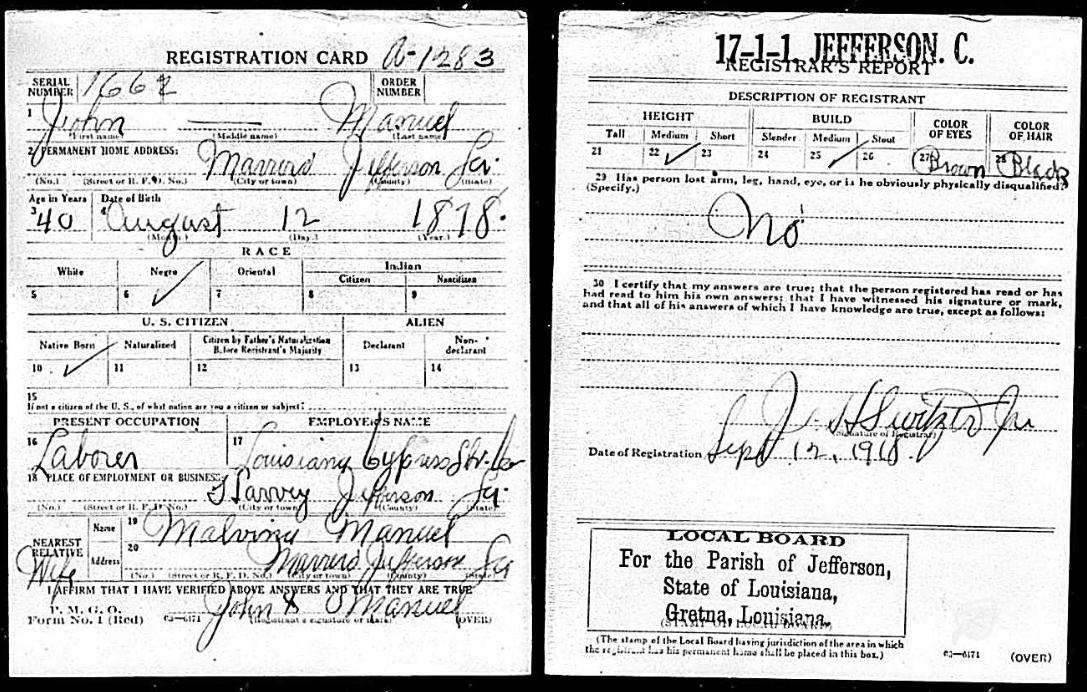 REGISTRATION CARD A-1283
SERIAL NUMBER 1662 ORDER NUMBER
1 John Manuel
(First name) (Middle name) (Last name)
2 PERMANENT HOME ADDRESS: Marrero Jefferson La.
(No.) (Street or R. F. D. No.) (City or town) (County) (State)
Age in Years Date of Birth
3 40 4 August 12 1878.
(Month.) (Day.) (Year.)
RACE
White Negro Oriental Indian
Citizen Noncitizen
5 6 ✓ 7 8 9
U. S. CITIZEN ALIEN
Native Born Naturalized Citizen by Father's Naturalization Before Registrant's Majority Declarant Non-declarant
10 ✓ 11 12 13 14
15
If not a citizen of the U. S., of what nation are you a citizen or subject?
PRESENT OCCUPATION EMPLOYER'S NAME
16 Laborer 17 Louisiana Cypress Lbr. Co
18 PLACE OF EMPLOYMENT OR BUSINESS: Harvey Jefferson La.
(No.) (Street or R. F. D. No.) (City or town) (County) (State)
NEAREST RELATIVE Name 19 Malvina Manuel
Wife Address 20 Marrero Jefferson La
(No.) (Street or R. F. D. No.) (City or town) (County) (State)
I AFFIRM THAT I HAVE VERIFIED ABOVE ANSWERS AND THAT THEY ARE TRUE
P. M. G. O.
Form No. 1 (Red) 03—6171 John Manuel
(Registrant's signature or mark) (OVER)
17-1-1 JEFFERSON. C.
REGISTRAR'S REPORT
DESCRIPTION OF REGISTRANT
HEIGHT BUILD COLOR OF EYES COLOR OF HAIR
Tall Medium Short Slender Medium Stout
21 22 ✓ 23 24 25 ✓ 26 27 Brown 28 Black
29 Has person lost arm, leg, hand, eye, or is he obviously physically disqualified?
(Specify.)
No
30 I certify that my answers are true; that the person registered has read or has
had read to him his own answers; that I have witnessed his signature or mark,
and that all of his answers of which I have knowledge are true, except as follows:
(Signature of Registrar)
Date of Registration Sept 12, 1918
LOCAL BOARD
For the Parish of Jefferson,
State of Louisiana,
Gretna, Louisiana.
(STAMP OF LOCAL BOARD)
(The stamp of the Local Board having jurisdiction of the area in which
the registrant has his permanent home shall be placed in this box.)
03—6171 (OVER)